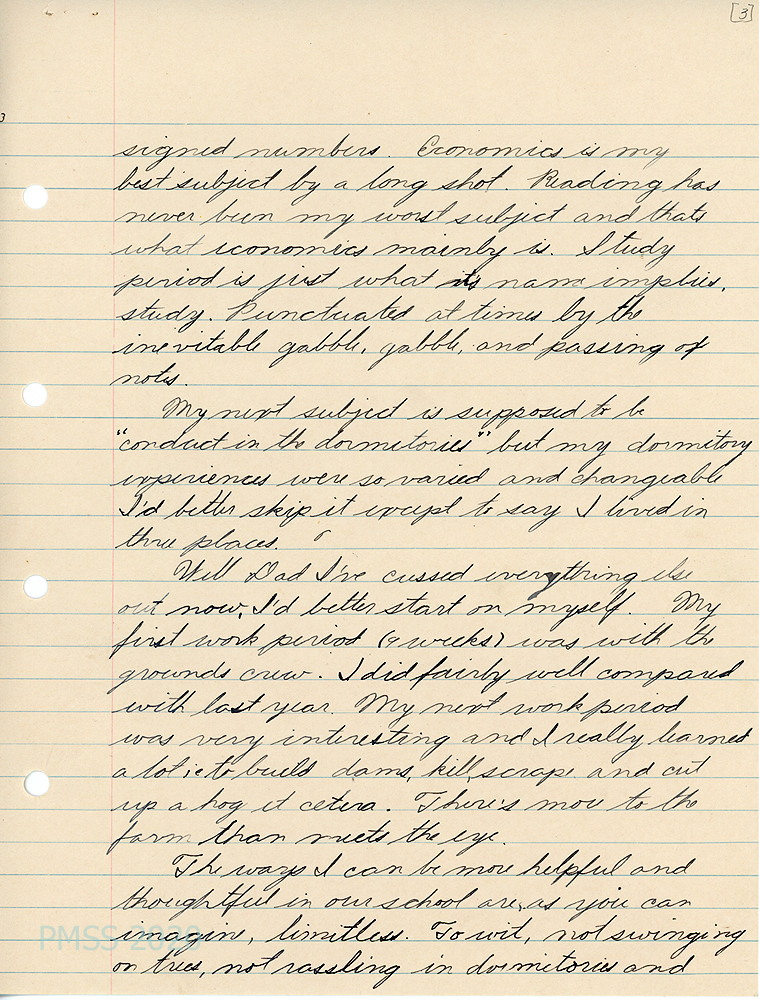 [3]
3
signed numbers. Economics is my
best subject by a long shot. Reading has
never been my worst subject and thats
what economics mainly is. Study
period is just what its name implies,
study. Punctuated at times by the
inevitable gabble, gabble, and passing of
notes.
My next subject is supposed to be
"conduct in the dormitories" but my dormitory
experiences were so varied and changeable
I'd better skip it except to say I lived in
three places.
Well Dad I've cussed everything else
out now, I'd better start on myself. My
first work period (9 weeks) was with the
grounds crew. I did fairly well compared
with last year. My next work period
was very interesting and I really learned
a lot ie to build dams, kill, scrape and cut
up a hog et cetera. There's more to the
farm than meets the eye.
The ways I can be more helpful and
thoughtful in our school are, as you can
imagine, limitless. To wit, not swinging
on trees, not rassling in dormitories and
PMSS 2020